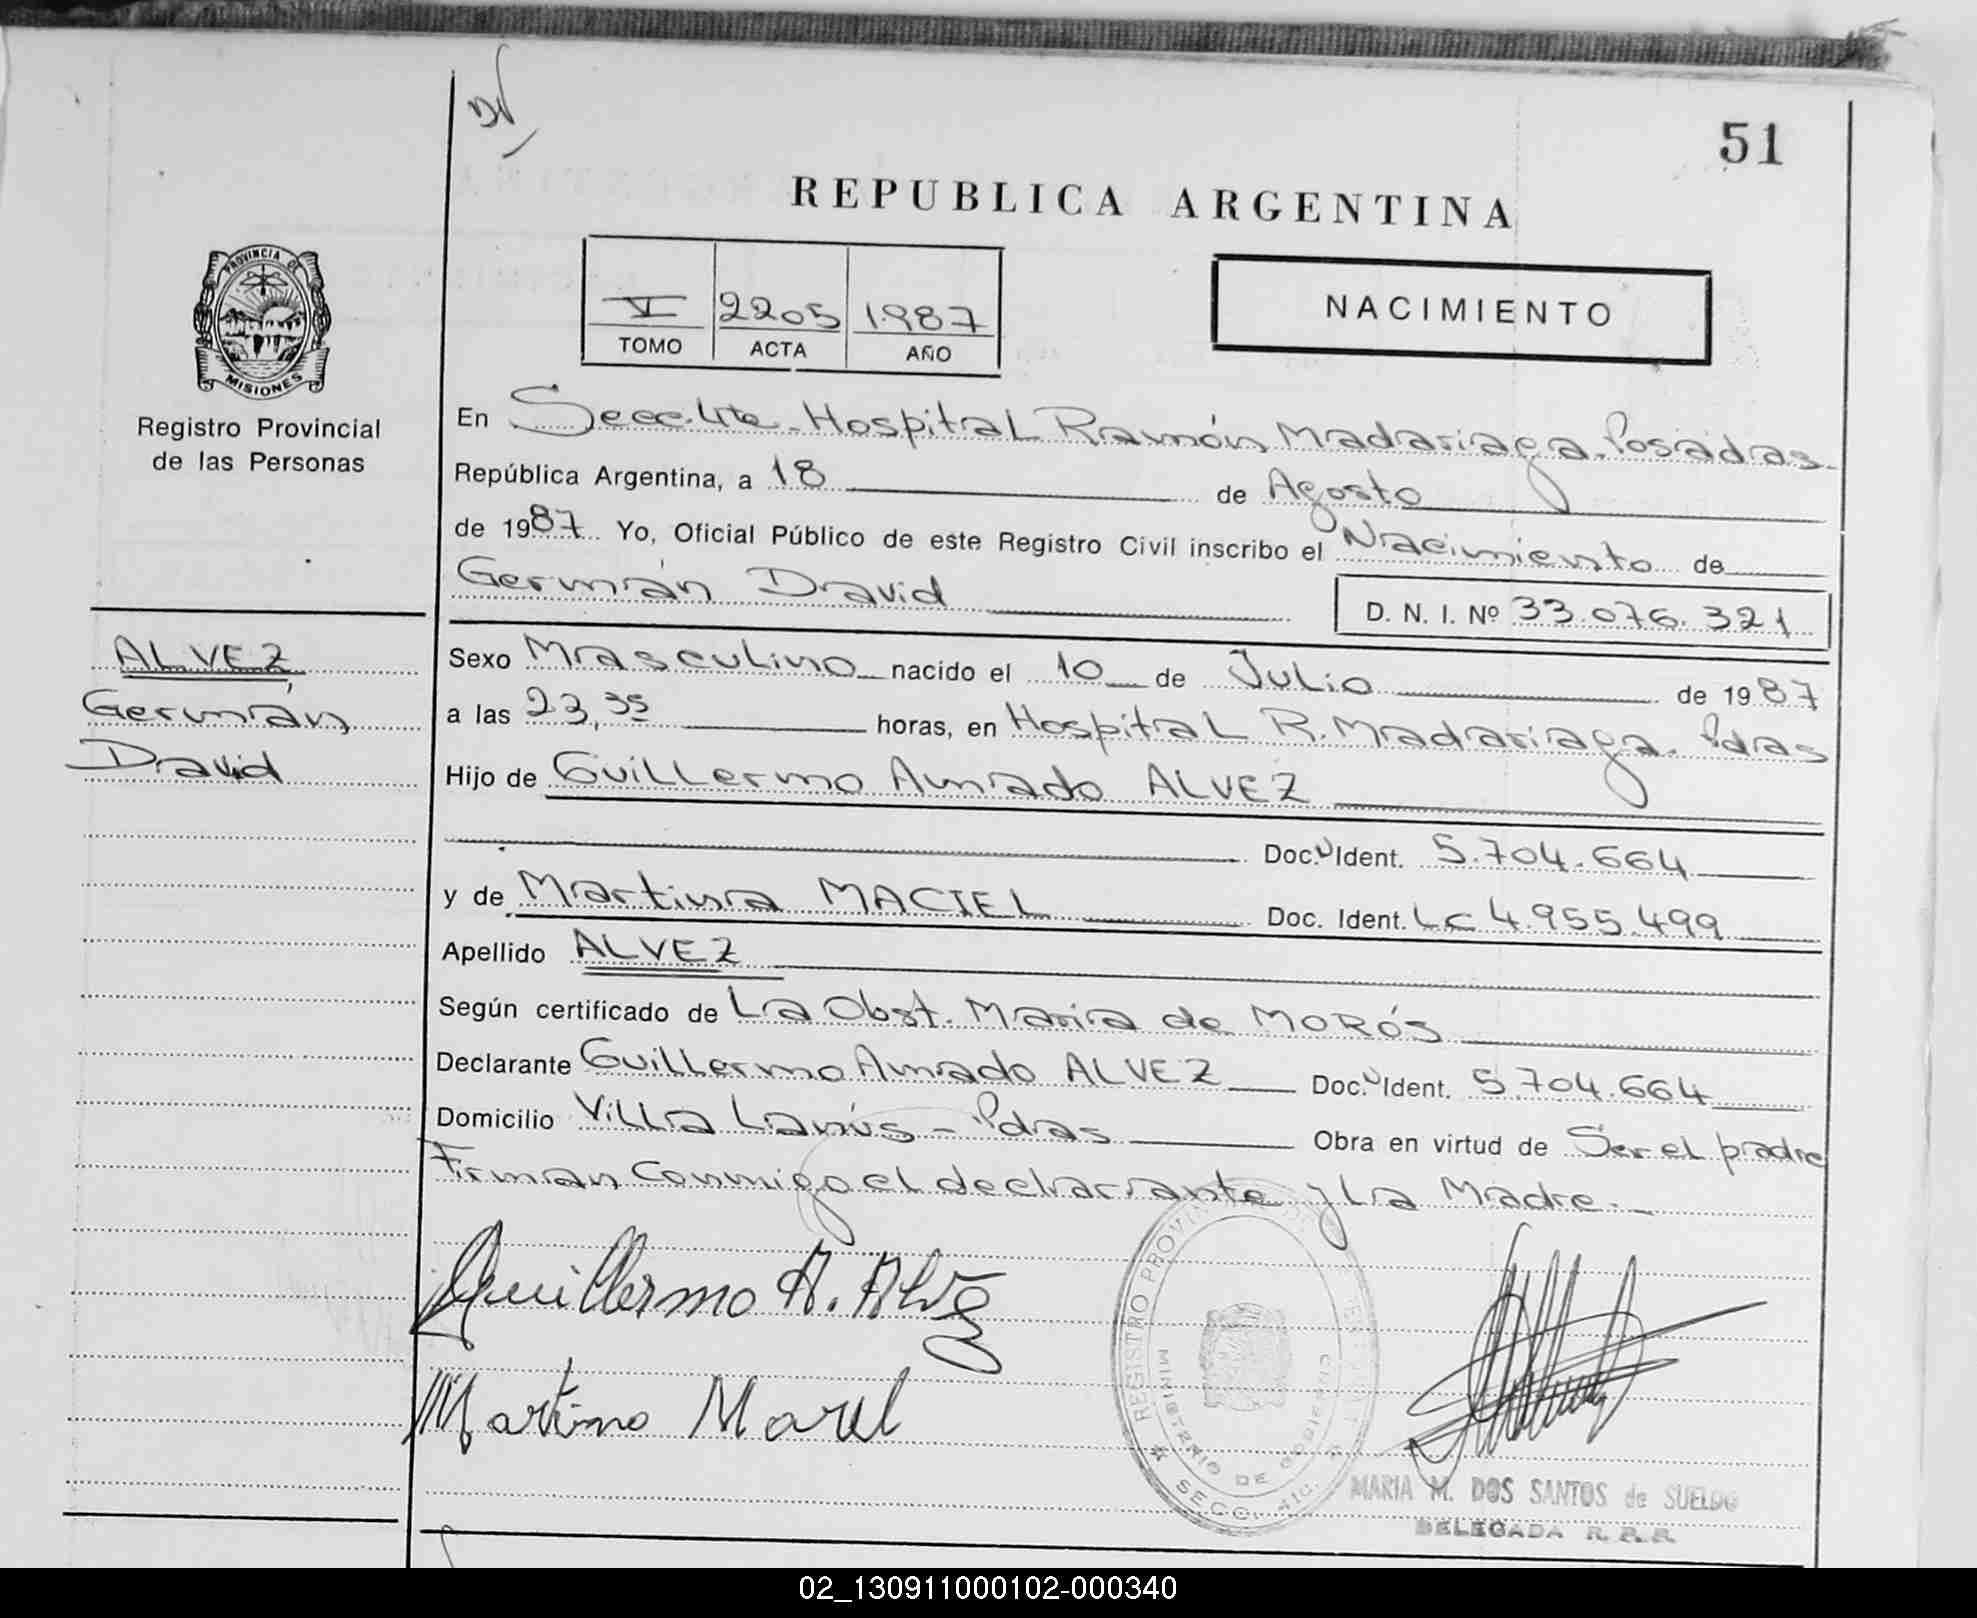 51
REPUBLICA ARGENTINA
PROVINCIA DE
MISIONES
Registro Provincial
de las Personas
V 2205 1987
TOMO ACTA AÑO
NACIMIENTO
En Secc. 4ta - Hospital Ramón Madariaga. Posadas.
República Argentina, a 18 de Agosto
de 1987. Yo, Oficial Público de este Registro Civil inscribo el Nacimiento de
Germán David
D. N. I. Nº 33.076.321
ALVEZ,
Germán,
David
Sexo Masculino nacido el 10 de Julio de 1987
a las 23,35 horas, en Hospital R. Madariaga. Pdas
Hijo de Guillermo Amado ALVEZ
Doc. Ident. 5.704.664
y de Martina MACIEL Doc. Ident. Lc 4.955.499
Apellido ALVEZ
Según certificado de La Obst. Maria de MORÓS
Declarante Guillermo Amado ALVEZ Doc. Ident. 5.704.664
Domicilio Villa Lanús - Pdas Obra en virtud de Ser el padre
Firman Conmigo el declarante y La Madre.
Guillermo A. Alvez
REGISTRO PROVINCIAL DE
MINISTERIO DE GOBIERNO
SECC. 4ta.
MARIA M. DOS SANTOS de SUELDO
DELEGADA R. P. P.
02_130911000102-000340